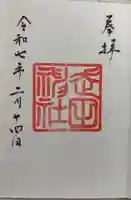 奉拝
神社
令和七年二月十四日